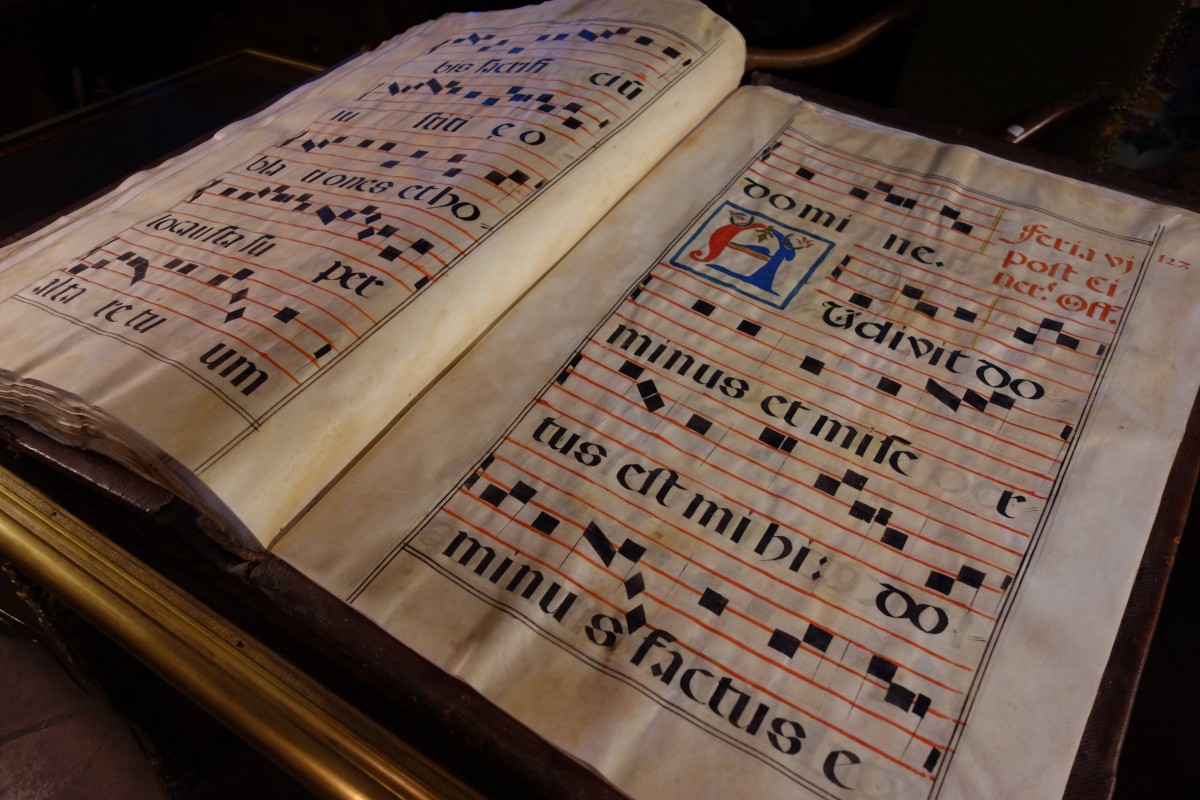 bis sacrifi ciū
iu stiti ę o
bla ti ones et ho
locausta su per
alta re tu um
domi ne.
feria vj
post ci
ner.ˢ Off.
127.
AUdivit do
minus et mise r
tus est mi hi: do
minu s factus e